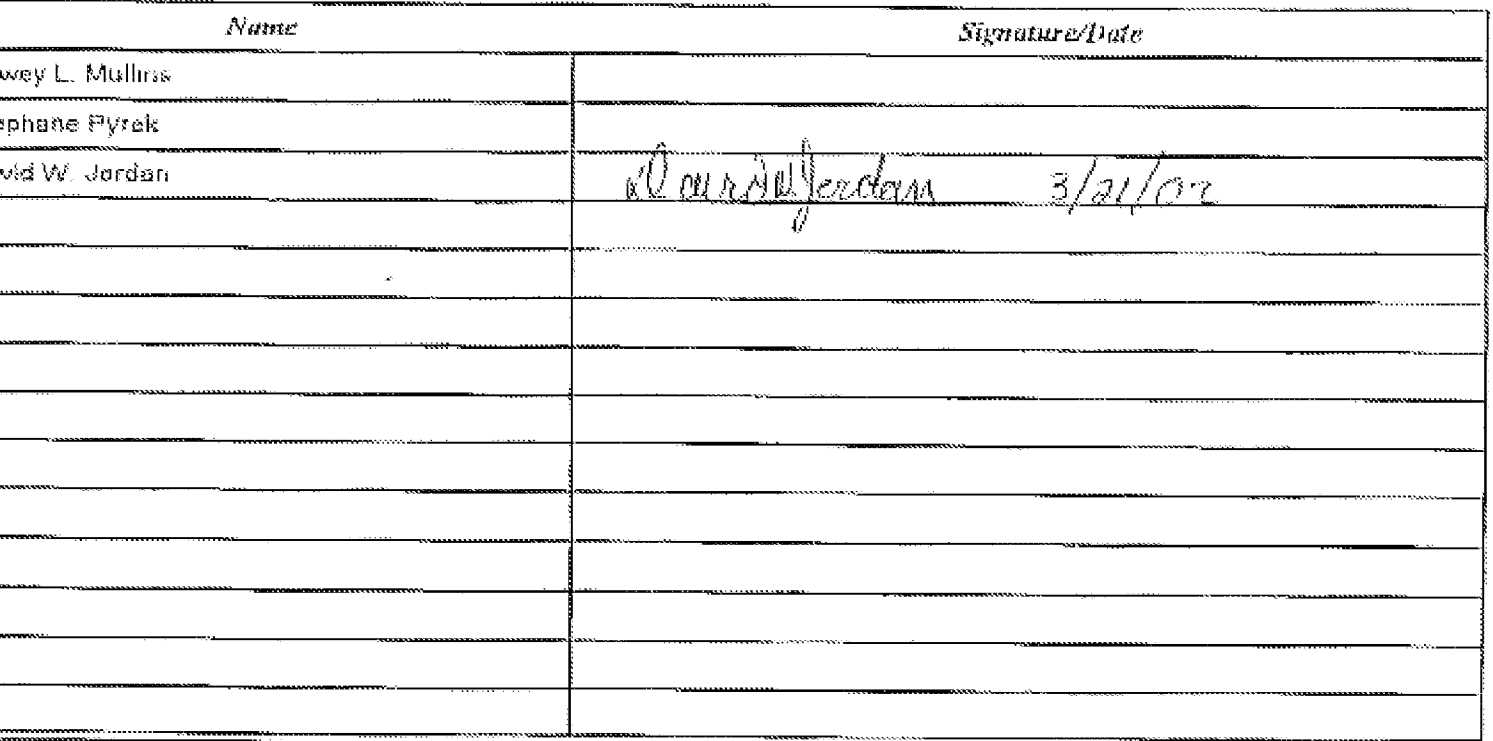 Name Signature/Date
wey L. Mullins
ephane Pyrek
vid W. Jordan David W Jordan 3/21/02